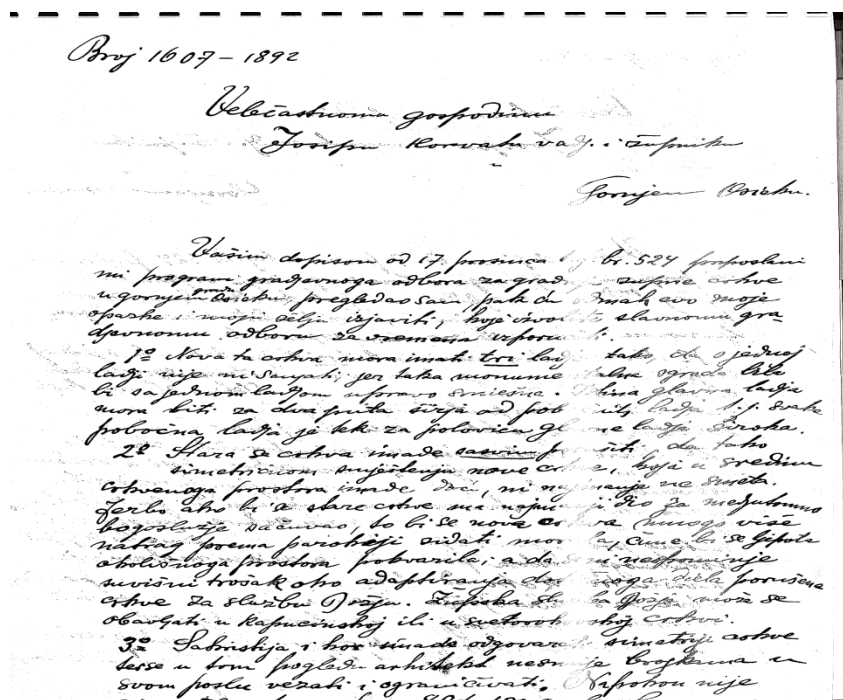 Broj 1607 – 1892
Velečastnomu gospodinu
Josipu Horvatu va dj. i župniku
Gornjem Osieku.
Vašim dopisom od 17. prosinca br. 524 priposlani
mi program gradjevnoga odbora za grad župne crkve
u gornjem gradu Osieku, pregledao sam pak da odmah evo moje
opazke i moju želju izjaviti, koje slavnomu gra-
djevnomu odboru za vremena
1º Nova ta crkva mora imati tri ladje tako, da o jednoj
ladji nije ni sanjati, jer taka monume talna ograda bila
bi sa jednom ladjom upravo smiešna. glavna ladja
mora biti za dva puta širja od pob nih ladja t. j. svaka
pobočna ladja je tek za polovicu gl ne ladje široka.
2º Stara se crkva imade sasvim p šiti, da tako
simetričnom smještenju nove cr e, koja u sredinu
crkvenoga prostora imade doći, ni najmanje ne smeta.
Jerbo ako bi se stare crkve ma najm ji dio za medjutomno
bogoslužje sačuvao, to bi se nova cr va mnogo više
natrag prema parohiji zidati mor la, čime bi se ljepota
okolišnoga prostora pokvarila; a da ni nespominje
suvišni trošak oko adaptiranja do noga diela porušene
crkve za službu Božju. Župska sl ba Božja može se
obavljati u kapucinskoj ili u svetorok skoj crkvi.
3º Sakristija i kor imade odgovarati simetriji crkve
terse u tom pogledu arhitekt nesmije brojkama u
svom poslu vezati i ograničivati. Napokon nije